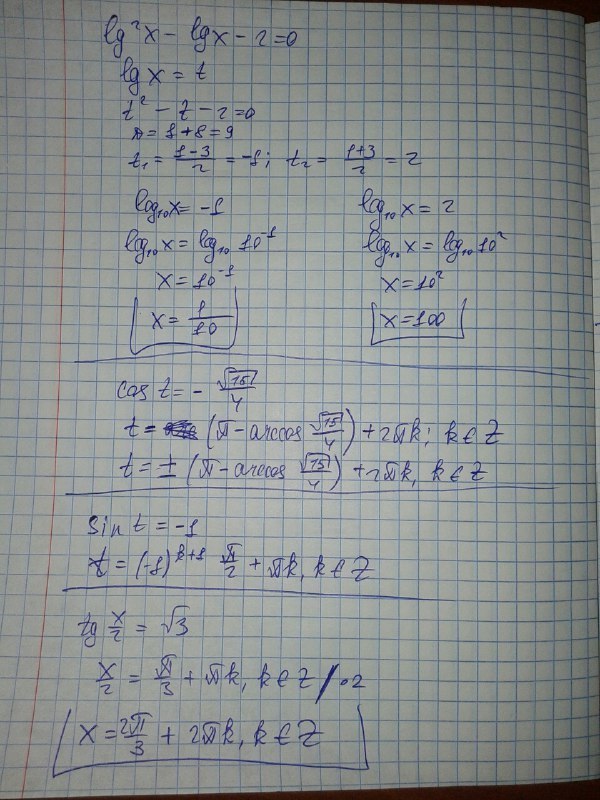 lg²x - lgx - 2 = 0
lg x = t
t² - t - 2 = 0
D = 1 + 8 = 9
t₁ = (1-3)/2 = -1; t₂ = (1+3)/2 = 2
log₁₀x = -1 log₁₀x = 2
log₁₀x = log₁₀10⁻¹ log₁₀x = log₁₀10²
x = 10⁻¹ x = 10²
x = 1/10 x = 100
cos t = - √15/4
t = (π - arccos √15/4) + 2πk; k ∈ Z
t = ± (π - arccos √15/4) + 2πk, k ∈ Z
sin t = -1
t = (-1)ᵏ⁺¹ π/2 + πk, k ∈ Z
tg x/2 = √3
x/2 = π/3 + πk, k ∈ Z / · 2
x = 2π/3 + 2πk, k ∈ Z